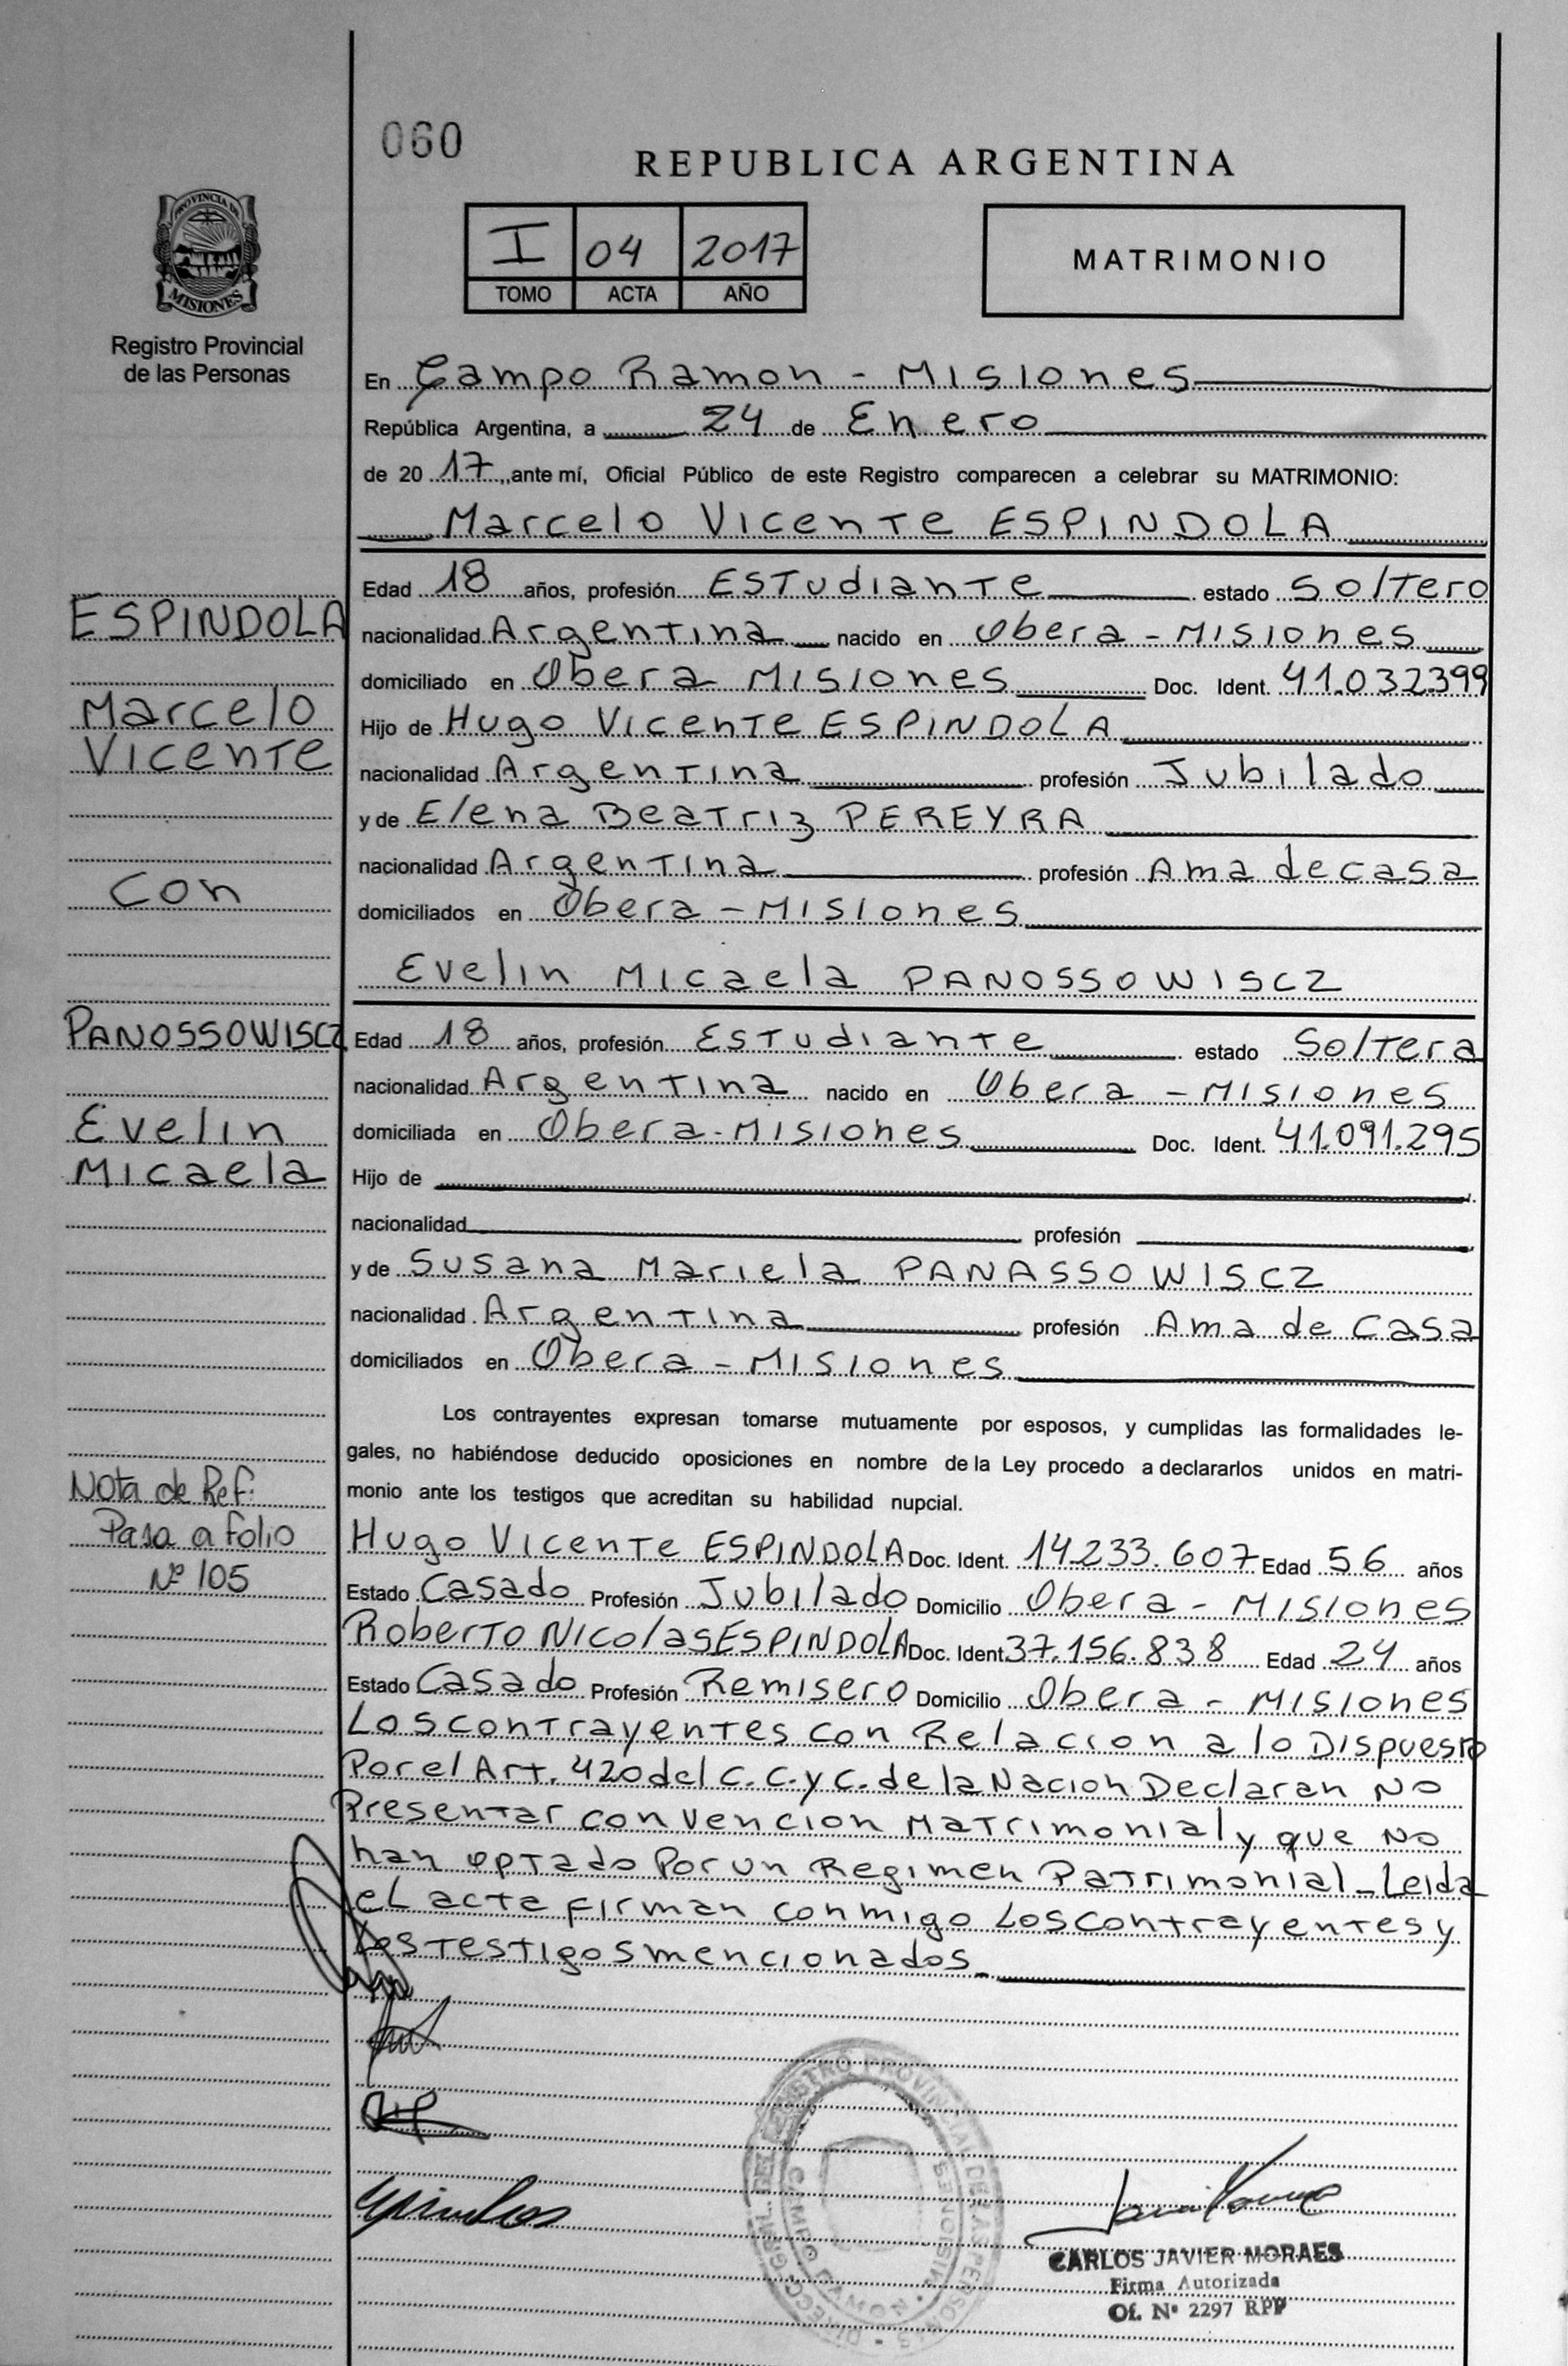 060
REPUBLICA ARGENTINA
PROVINCIA DE
MISIONES
Registro Provincial
de las Personas
I 04 2017
TOMO ACTA AÑO
MATRIMONIO
En Campo Ramon - Misiones
República Argentina, a 24 de Enero
de 20 17, ante mí, Oficial Público de este Registro comparecen a celebrar su MATRIMONIO:
Marcelo Vicente ESPINDOLA
Edad 18 años, profesión Estudiante estado Soltero
nacionalidad Argentina nacido en Obera - Misiones
domiciliado en Obera Misiones Doc. Ident. 41.032.399
Hijo de Hugo Vicente ESPINDOLA
nacionalidad Argentina profesión Jubilado
y de Elena Beatriz PEREYRA
nacionalidad Argentina profesión Ama de casa
domiciliados en Obera - Misiones
Evelin Micaela PANOSSOWISCZ
Edad 18 años, profesión Estudiante estado Soltera
nacionalidad Argentina nacido en Obera - Misiones
domiciliada en Obera - Misiones Doc. Ident. 41.091.295
Hijo de
nacionalidad profesión
y de Susana Mariela PANASSOWISCZ
nacionalidad Argentina profesión Ama de Casa
domiciliados en Obera - Misiones
Los contrayentes expresan tomarse mutuamente por esposos, y cumplidas las formalidades le-
gales, no habiéndose deducido oposiciones en nombre de la Ley procedo a declararlos unidos en matri-
monio ante los testigos que acreditan su habilidad nupcial.
Hugo Vicente ESPINDOLA Doc. Ident. 14.233.607 Edad 56 años
Estado Casado Profesión Jubilado Domicilio Obera - Misiones
Roberto Nicolas ESPINDOLA Doc. Ident. 37.156.838 Edad 24 años
Estado Casado Profesión Remisero Domicilio Obera - Misiones
Los contrayentes con Relacion a lo Dispuesto
Por el Art. 420 del C.C.y C. de la Nacion Declaran No
Presentar convencion Matrimonial y que No
han optado Por un Regimen Patrimonial - Leida
el acta firman conmigo Los contrayentes y
Los testigos mencionados.
ESPINDOLA
Marcelo
Vicente
con
PANOSSOWISCZ
Evelin
Micaela
Nota de Ref:
Pasa a folio
Nº 105
DIRECC. GRAL. DEL REGISTRO PROVINCIAL DE LAS PERSONAS
CAMPO RAMON - MISIONES
CARLOS JAVIER MORAES
Firma Autorizada
Of. Nº 2297 RPP